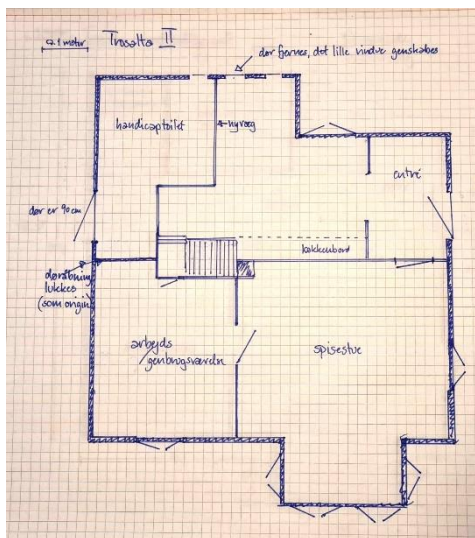 ca. 1 meter
Trosalta II
dør fjernes, det lille vindue genskabes
handicaptoilet
ny væg
entré
dør er 90 cm
køkkenbord
døråbning
lukkes
(som origin)
arbejds
/genbrugsværdn
spisestue